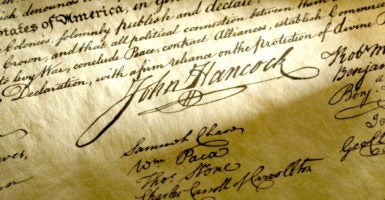 denounces
States of America, in
Colonies, solemnly publish and declare
Crown, and that all political connection between them
to levy War, conclude Peace, contract Alliances, establish Commerce
Declaration, with a firm reliance on the Protection of divine
John Hancock
Robt M
Benjamin
Benj.
Geo
Samuel Chase
Wm Paca
Thos Stone
Charles Carroll of Carrollton